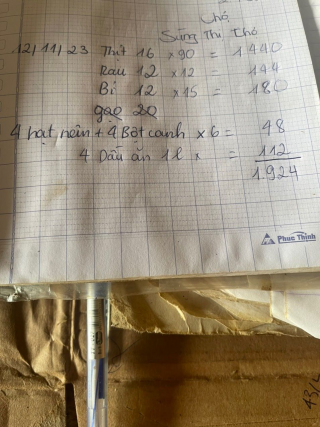 Chó
Sung Thi Chó
12/11/23 Thịt 16 × 90 = 1440
Rau 12 × 12 = 144
Bí 12 × 15 = 180
gạo 20
4 hạt nêm + 4 Bột canh × 6 = 48
4 Dầu ăn 1l × = 112
1.924
Phuc Thinh